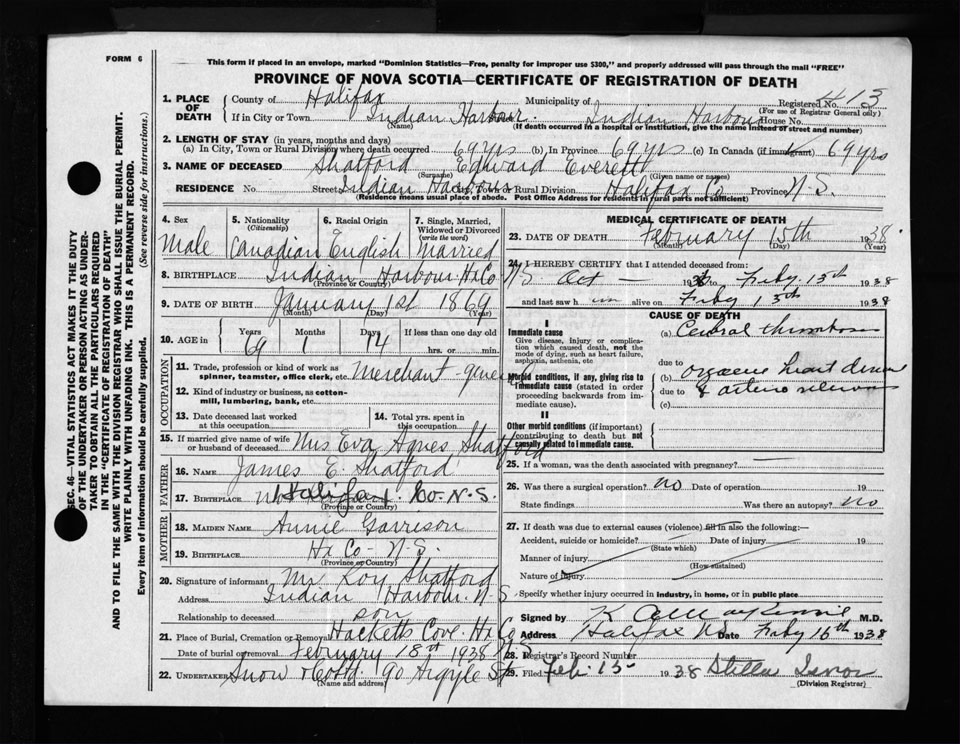 FORM 6
This form if placed in an envelope, marked "Dominion Statistics—Free, penalty for improper use $300," and properly addressed will pass through the mail "FREE"
PROVINCE OF NOVA SCOTIA—CERTIFICATE OF REGISTRATION OF DEATH
SEC. 46—VITAL STATISTICS ACT MAKES IT THE DUTY
OF THE UNDERTAKER OR PERSON ACTING AS UNDER-
TAKER TO OBTAIN ALL THE PARTICULARS REQUIRED
IN THE "CERTIFICATE OF REGISTRATION OF DEATH"
AND TO FILE THE SAME WITH THE DIVISION REGISTRAR WHO SHALL ISSUE THE BURIAL PERMIT.
WRITE PLAINLY WITH UNFADING INK. THIS IS A PERMANENT RECORD.
Every item of information should be carefully supplied. (See reverse side for instructions.)
1. PLACE OF DEATH County of Halifax Municipality of Registered No. 413
(For use of Registrar General only)
If in City or Town Indian Harbour. Indian Harbour House No.
(Name) (If death occurred in a hospital or institution, give the name instead of street and number)
2. LENGTH OF STAY (in years, months and days)
(a) In City, Town or Rural Division where death occurred 69 yrs (b) In Province 69 yrs (c) In Canada (if immigrant) 69 yrs
3. NAME OF DECEASED Shatford Edward Everett
(Surname) (Given name or names)
RESIDENCE No. Street Indian Harbour or Rural Division Halifax Co Province N.S.
(Residence means usual place of abode. Post Office Address for residents in rural parts not sufficient)
4. Sex Male
5. Nationality (Citizenship) Canadian
6. Racial Origin English
7. Single, Married, Widowed or Divorced (write the word) Married
8. BIRTHPLACE Indian Harbour Hx Co N.S.
(Province or County)
9. DATE OF BIRTH January 1st 1869
(Month) (Day) (Year)
10. AGE in Years 69 Months 1 Days 14 If less than one day old hrs. or min.
OCCUPATION
11. Trade, profession or kind of work as spinner, teamster, office clerk, etc. Merchant - general
12. Kind of industry or business, as cotton-mill, lumbering, bank, etc.
13. Date deceased last worked at this occupation
14. Total yrs. spent in this occupation
15. If married give name of wife or husband of deceased Mrs Eva Agnes Shatford
FATHER
16. NAME James E. Shatford
17. BIRTHPLACE Halifax Co. N.S.
(Province or County)
MOTHER
18. MAIDEN NAME Annie Garrison
19. BIRTHPLACE Hx Co - N.S.
(Province or County)
20. Signature of informant Mr Roy Shatford
Address Indian Harbour. N.S.
Relationship to deceased son
21. Place of Burial, Cremation or Removal Hacketts Cove. Hx Co N.S.
Date of burial or removal February 18th 1938
22. UNDERTAKER Snow & Co Ltd. 90 Argyle St
(Name and address)
MEDICAL CERTIFICATE OF DEATH
23. DATE OF DEATH February 15th 1938
(Month) (Day) (Year)
24. I HEREBY CERTIFY that I attended deceased from:
Oct — 193 to Feby 15th 1938
and last saw him alive on Feby 15th 1938
CAUSE OF DEATH
I
Immediate cause
Give disease, injury or complication which caused death, not the mode of dying, such as heart failure, asphyxia, asthenia, etc
(a) thrombosis
due to
Morbid conditions, if any, giving rise to immediate cause (stated in order proceeding backwards from immediate cause).
(b) organic heart disease
due to & arterio
(c)
II
Other morbid conditions (if important) contributing to death but not causally related to immediate cause.
25. If a woman, was the death associated with pregnancy? —
26. Was there a surgical operation? no Date of operation 19
State findings Was there an autopsy? no
27. If death was due to external causes (violence) fill in also the following:—
Accident, suicide or homicide? Date of injury 19
(State which)
Manner of injury
(How sustained)
Nature of injury
Specify whether injury occurred in industry, in home, or in public place
Signed by M.D.
Address Halifax NS Date Feby 16th 1938
28. Registrar's Record Number
29. Filed Feb. 15 1938 Stella
(Division Registrar)